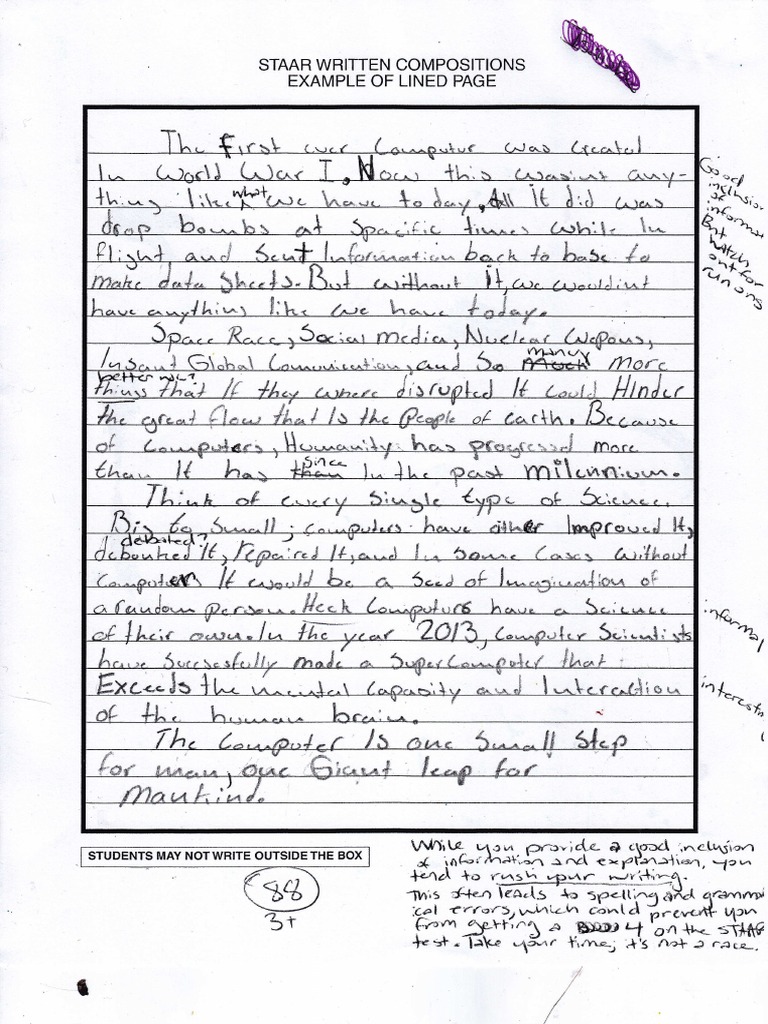 STAAR WRITTEN COMPOSITIONS
EXAMPLE OF LINED PAGE
The First ever Computer was Created
In World War I. Now this wasint any-
thing like what we have today. All It did was
drop bombs at Spacific times while In
flight, and Sent Information back to base to
make data Sheets. But without It, we wouldint
have anything like we have today.
Space Race, Social Media, Nuclear Wepons,
Insant Global Communication, and So Much many more
better now?
things that If they where disrupted It could Hinder
the great flow that Is the People of earth. Because
of Computers, Humanity has progressed more
than It has than since In the past milennium.
Think of every Single type of Science.
Big to Small; computers have other Improved It,
debated?
debounked It, repaired It, and In Some Cases without
Computer It would be a Seed of Imagination of
a random person. Heck Computers have a Science
of their own. In the year 2013, Computer Scientists
have Succesfully made a SuperComputer that
Exceeds the mental Capasity and Interaction
of the human brain.
The Computer Is one Small Step
for man, one Giant leap for
Mankind.
Good
inclusion
of
But
watch
out for
run ons
informal
STUDENTS MAY NOT WRITE OUTSIDE THE BOX
88
3+
While you provide a good inclusion
of information and explanation, you
tend to rush your writing.
This often leads to spelling and grammat
ical errors, which could prevent you
from getting a 4 on the STAAR
test. Take your time; it's not a race.